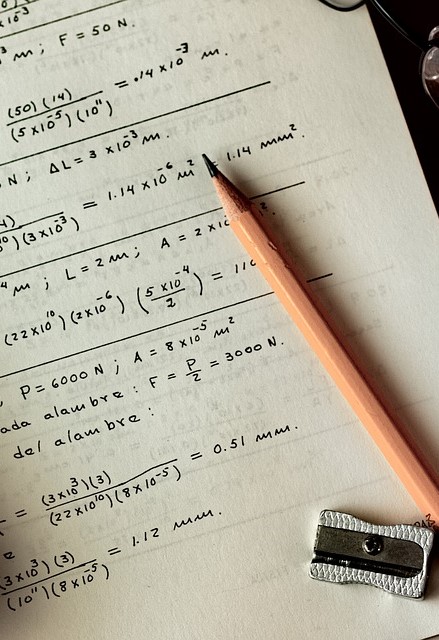 x10⁻³
³ m ; F = 50 N.
(50)(14) / (5 x10⁻⁵)(10¹¹) = .14 x10⁻³ m.
N ; ΔL = 3 x10⁻³ m.
4) / ¹⁰)(3x10⁻³) = 1.14 x10⁻⁶ m² = 1.14 mm².
⁴ m ; L = 2 m ; A = 2 x10
(22 x10¹⁰)(2x10⁻⁶)(5 x10⁻⁴ / 2) = 110
, P = 6000 N ; A = 8 x10⁻⁵ m²
ada alambre : F = P/2 = 3000 N.
del alambre :
= (3x10³)(3) / (22 x10¹⁰)(8x10⁻⁵) = 0.51 mm.
e
(3x10³)(3) / (10¹¹)(8x10⁻⁵) = 1.12 mm.